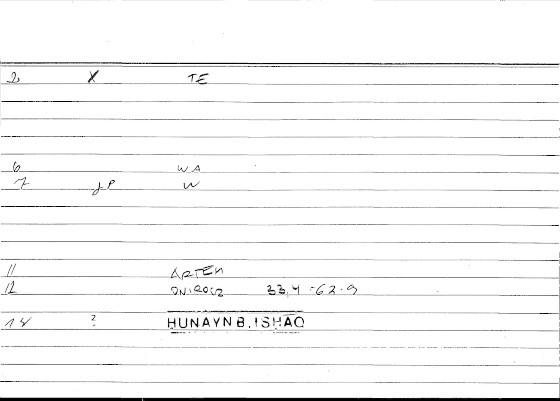 2 X TE
6 WA
7 JP W
11 ARTEM
12 ONIROCR 33,4-62.9
14 ? HUNAYN B. ISHAQ